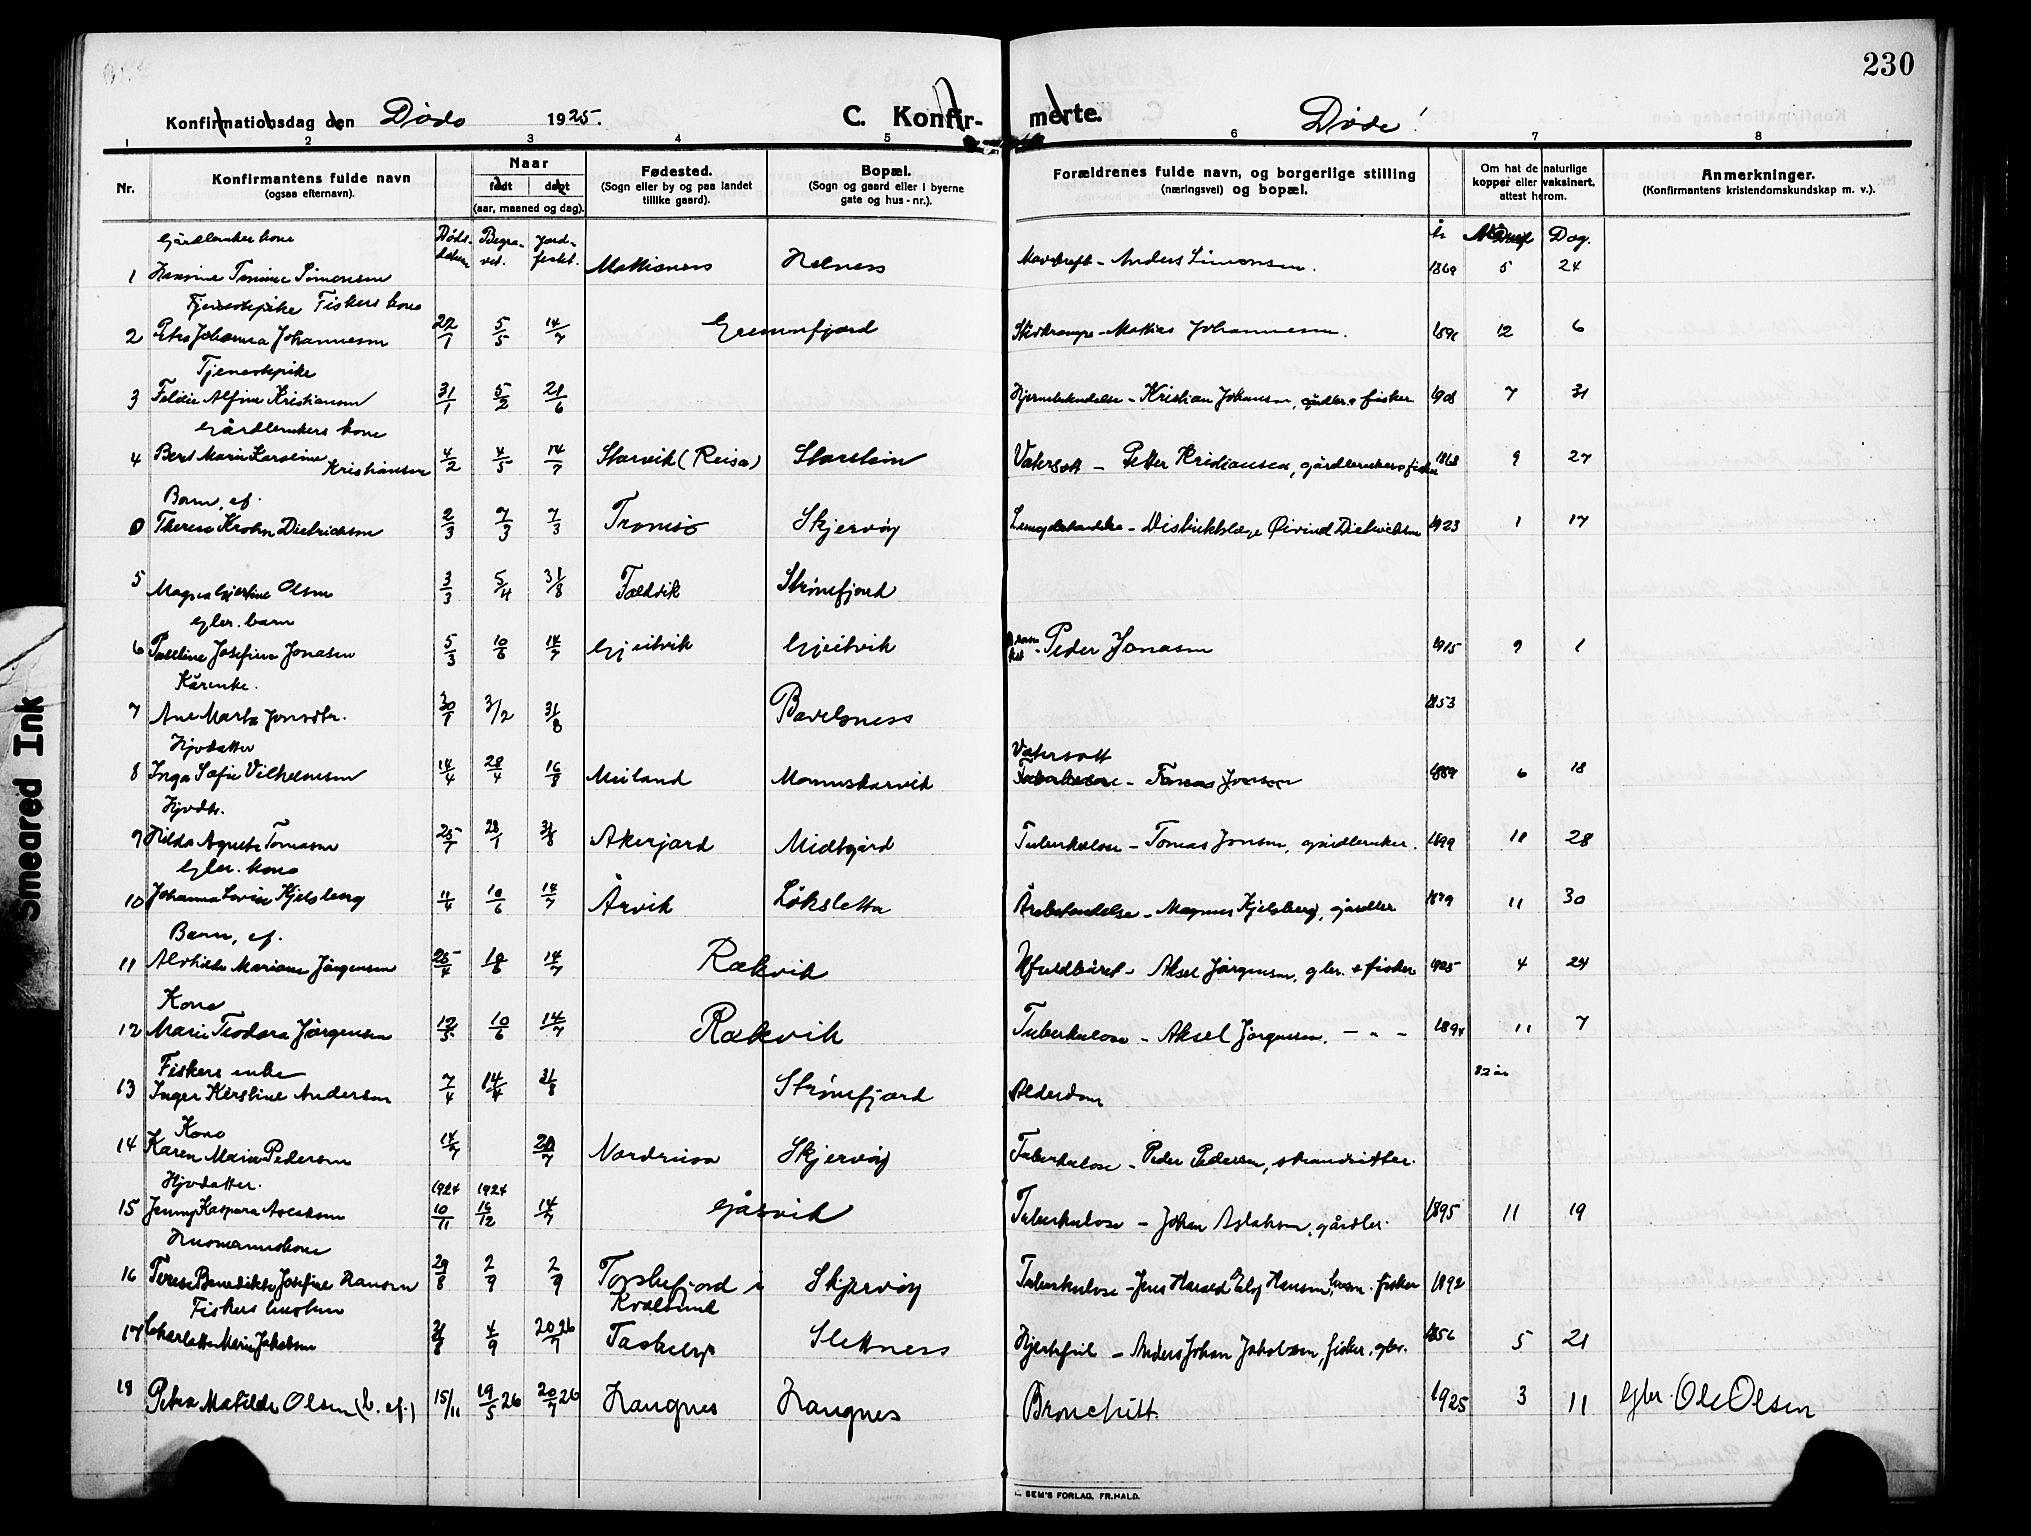 230
Konfirmationsdag den Døde 1925.
C. Konfir-
merte.
Døde!
1 2 3 4 5 6 7 8
Nr.
Konfirmantens fulde navn
(ogsaa efternavn).
Naar
født døpt
(aar, maaned og dag).
Fødested.
(Sogn eller by og paa landet
tillike gaard).
Bopæl.
(Sogn og gaard eller i byerne
gate og hus-nr.).
Forældrenes fulde navn, og borgerlige stilling
(næringsvei) og bopæl.
Om hat de naturlige
kopper eller vaksinert,
attest herom.
Anmerkninger.
(Konfirmantens kristendomskundskap m. v.).
Døds- Begra- Jord-
datum vet. festet.
år Dag.
Gårdbruker kone
1 Simonsen Helness Anders Simonsen. 1869 5 24
Tjenestepike Fiskers kone
2 Petra Johanna Johannesen 22/1 5/5 14/7 Grunnfjord Mathias Johannesen. 12 6
Tjenestepike
3 Alfine Kristiansen 31/1 5/2 21/6 Kristian Johansen, gårdbr. & fisker 1908 7 31
Gårdbrukers kone
4 Berit Marie Karoline Kristiansen 4/2 4/5 14/7 Storvik (Reisa) Vatersott – Petter Kristiansen, gårdbruker & fisker 1868 9 27
Barn, ef.
0 Therese Krohn Dietrichson 2/3 7/3 7/3 Tromsø Skjervøy Distriktslæge Øivind Dietrichson 1923 1 17
5 Magna Gjertine Olsen 3/3 5/4 31/8 Strømfjord
Gbr. barn
6 Paseline Josefine Jonasen 5/3 10/6 14/7 Gjeitvik Gjeitvik Peder Jonasen 1915 9 1
Kårenke.
7 Ane Marta Jonsdtr. 30/1 3/2 31/8 1853
Hjvdatter Vatersott
8 Inga Sofie Vilhelmsen 14/4 28/4 16/8 Meiland 1889 6 18
Hjvdtr.
9 Hilda Agnete Tomasen 28/1 31/8 Akerjord Midtgård Tuberkulose – Tomas Jonsen, gårdbruker. 1899 28
Gbr. kone
10 Johanna Lovise Kjelsberg 11/4 10/6 14/7 Årvik Løksletta Magnus Kjelsberg, gårdbr 1879 11 30
Barn, ef.
11 Alvhilde Mariane Jørgensen 25/4 14/7 Rækvik Ufuldbåret – Aksel Jørgensen, gbr. & fisker 1925 4 24
Kone
12 Marie Teodora Jørgensen 12/5 10/6 14/7 Rækvik Tuberkulose – Aksel Jørgensen. – " – 1894 11 7
Fiskers enke 82 år
13 Inger Kirstine Andersen 7/4 14/4 31/8 Strømfjord Alderdom
Kone
14 Karen Marie Pedersen 14/7 20/7 Nordreisa Skjervøy Tuberkulose – Peder Pedersen, strandsitter.
Hjvdatter. 1924 1924
15 Jenny Kaspara Aslaksen 10/11 16/12 14/7 Gåsvik Tuberkulose – Johan Aslaksen, gårdbr. 1895 11 19
Husmannskone
16 Terese Benedikte Josefine Hansen 29/8 2/9 2/9 Torskefjord i Kvalsund Skjervøy Tuberkulose – Jens Harald Elof Hansen, husm. fisker 1892
Fiskers hustru
17 Charlotte Marie Jakobsen 31/8 4/9 20/7 26 Slettness Hjertefeil – Anders Johan Jakobsen, fisker, gbr. 1856 5 21
18 Petra Matilde Olsen (b. ef.) 15/11 19/5 26 20/7 26 Haugnes Haugnes Bronchitt. 1925 3 11 Gbr. Ole Olsen
SEM'S FORLAG, FR.HALD.
Smeared Ink